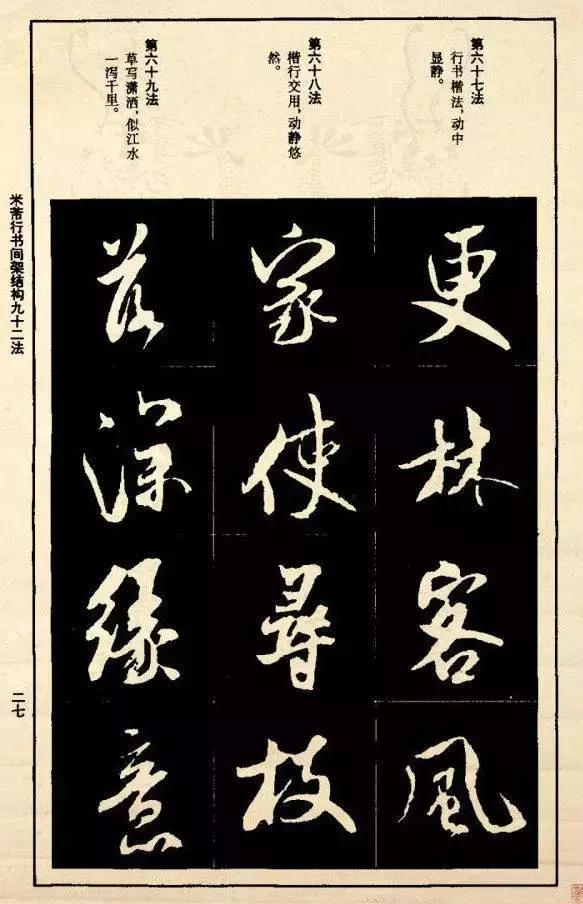 第六十七法
行书楷法,动中
显静。
更林客风
第六十八法
楷行交用,动静悠
然。
家使寻枝
第六十九法
草写潇洒,似江水
一泻千里。
深缘意
米芾行书间架结构九十二法
二七